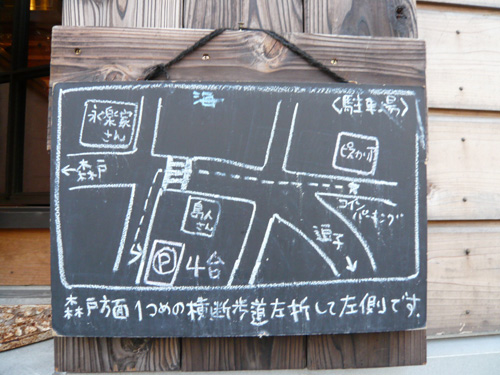 海
〈駐車場〉
永楽家
さん
ピスカリア
←森戸
コイン
パーキング
島人
さん
逗子
P 4台
森戸方面1つめの横断歩道左折して左側です.